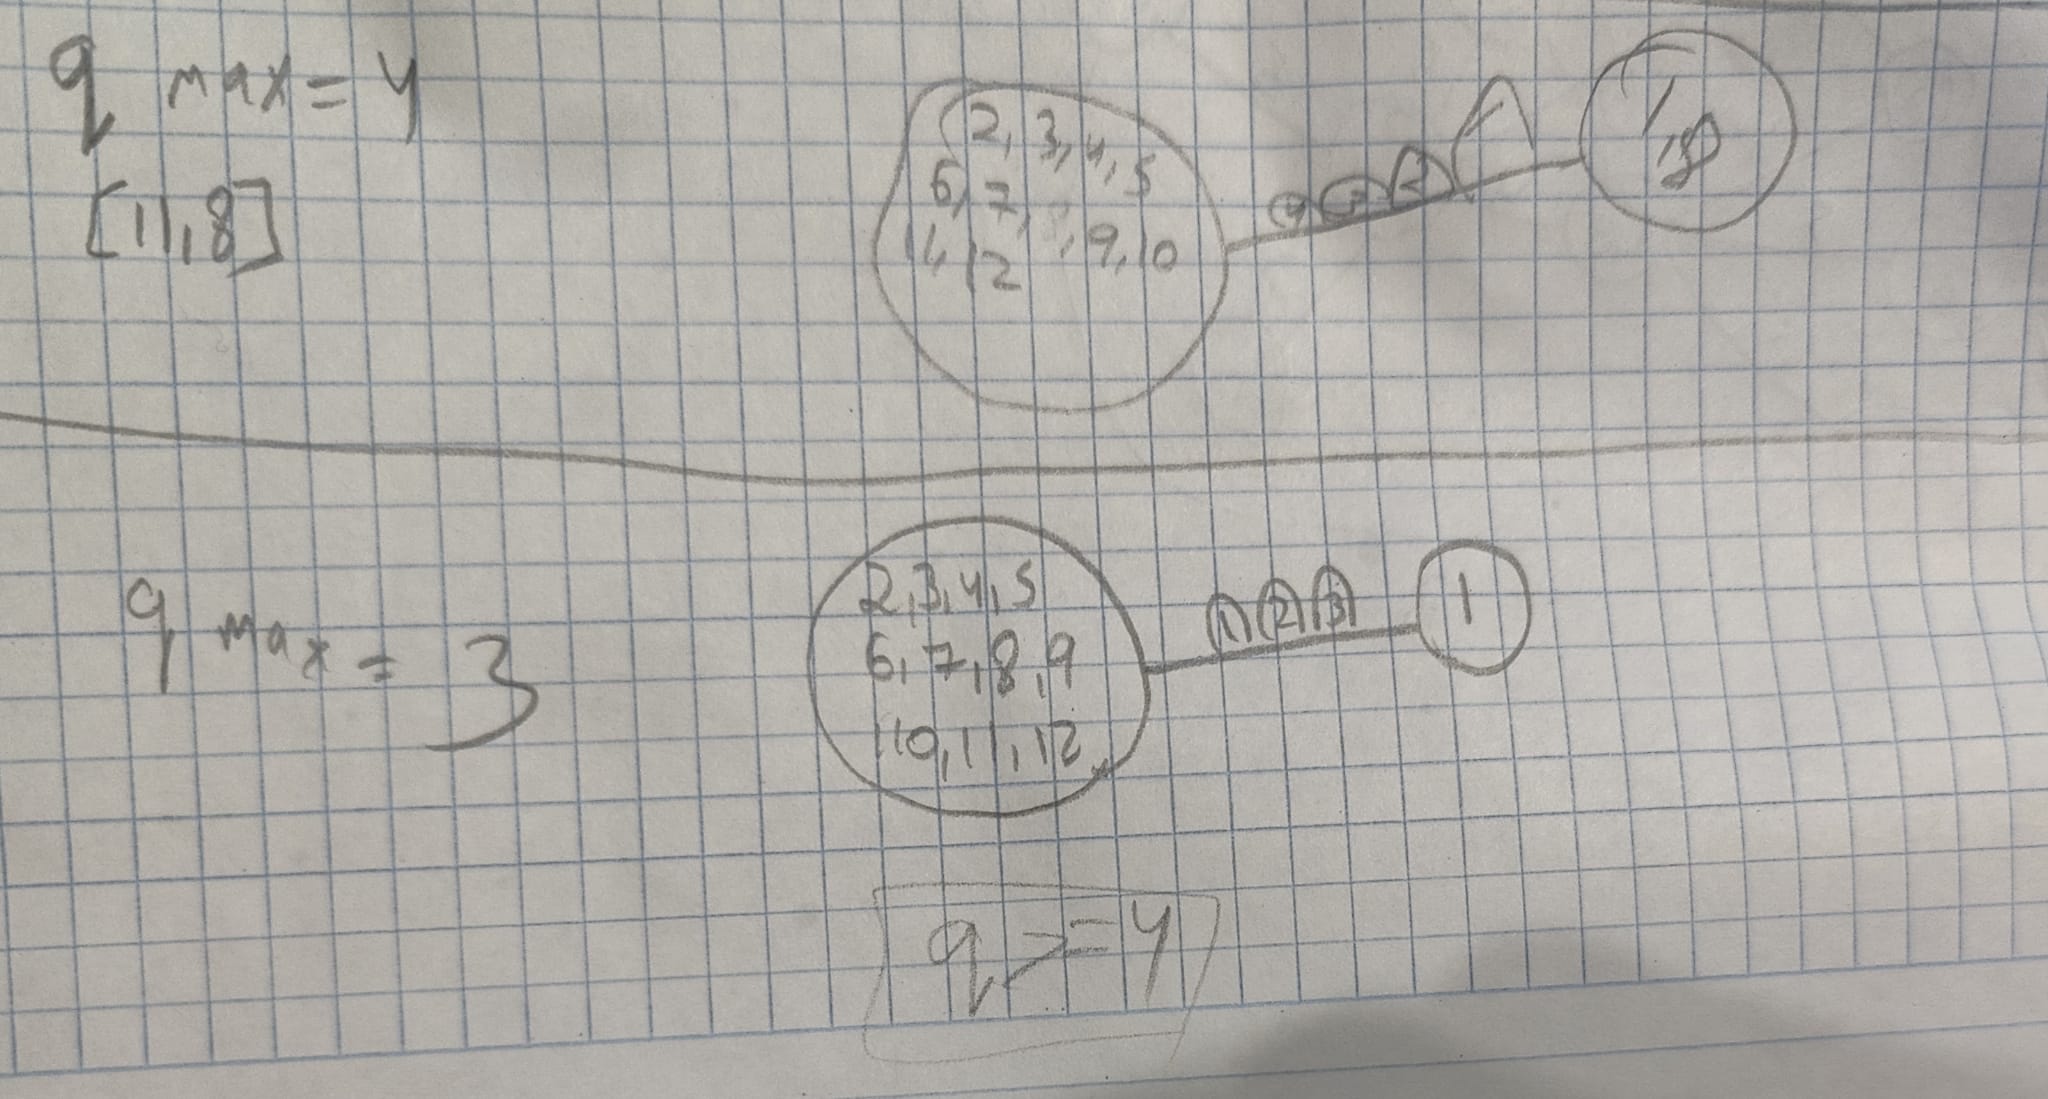 q max = 4
[11,8]
2, 3, 4, 5
6, 7, 8, 9, 10
11, 12
4 3 2
1,8
q max = 3
2,3,4,5
6,7,8,9
10,11,12
1 2 3
1
q >= 4